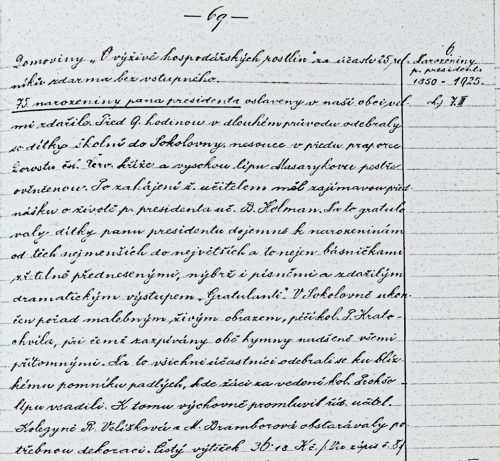 — 69 —
Domoviny „O výživě hospodářských rostlin" za účasti 25 rol-
níků zdarma bez vstupného.
6.
Narozeniny
p. presidenta
1850 - 1925.
d. 7.III
75. narozeniny pana presidenta oslaveny v naší obci vel-
mi zdařilo. Před 9. hodinou v dlouhém průvodu odebraly
se dítky školní do Sokolovny, nesouce v předu prapor
Dorostu čsl. Červ. kříže a vysokou lípu Masarykovu pestře
ověnčenou. Po zahájení ř. učitelem měl zajímavou před-
nášku o životě p. presidenta uč. B. Holman. Na to gratulo-
valy dítky panu presidentu dojemně k narozeninám
od těch nejmenších do největších a to nejen básničkami
zřetelně přednesenými, nýbrž i písněmi a zdařilým
dramatickým výstupem „Gratulanti". V Sokolovně ukon-
čen pořad malebným živým obrazem, péčí kol. P. Krato-
chvíla, při čemž zazpívány obě hymny nadšeně všemi
přítomnými. Na to všichni účastníci odebrali se ku blíz-
kému pomníku padlých, kde žáci za vedení kol. Prokše
lípu vsadili. K tomu výchovně promluvil říd. učitel.
Kolegyně R. Veližkova a M. Bramborová obstarávaly po-
třebnou dekoraci. Čistý výtěžek 36.18 Kč. / Viz zápis č. 8/